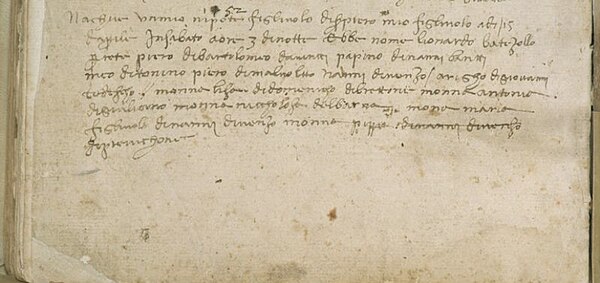 52
Nachue un mio nipote figliuolo di ser piero mio figliuolo a dì 15
daprile in sabato a ore 3 di notte Ebbe nome lionardo batezollo
prete piero di bartolomeo da uinci papino di nanni banti
meo di tonino piero di maluolto nanni di uenzo / arigho di giouanni
tedescho / monna lisa di domenicho di brettone monna antonia
di giuliano monna nicholosa del barna monna maria
figliuola di nanni di uenzo monna pippa di nanni di uenzo
di preuichone